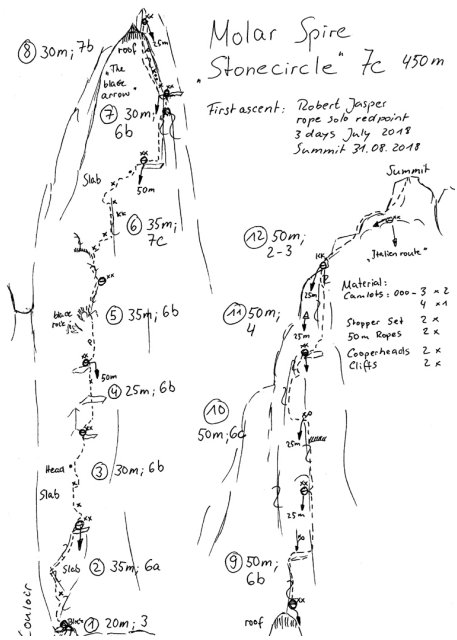 Molar Spire
"Stonecircle" 7c 450m
First ascent: Robert Jasper
rope solo redpoint
3 days July 2018
Summit 31.08.2018
⑧ 30m; 7b
xx
roof
25m
"The
black
arrow"
⑦ 30m;
6b
xx
50m
Slab
⑥ 35m;
7c
xx
⑤ 35m; 6b
black
rock
xx
50m
④ 25m; 6b
xx
Head
③ 30m; 6b
Slab
xx
② 35m; 6a
Slab
Couloir
① 20m; 3
Summit
xx
"Italien route"
⑫ 50m;
2-3
xx
25m
⑪ 50m;
4
25m
xx
Material:
Camlots: 000 - 3 x 2
4 x 1
Stopper Set 2x
50m Ropes 2x
Cooperheads 2x
Cliffs 2x
⑩
50m; 6c
25m
xx
25m
⑨ 50m;
6b
xx
roof